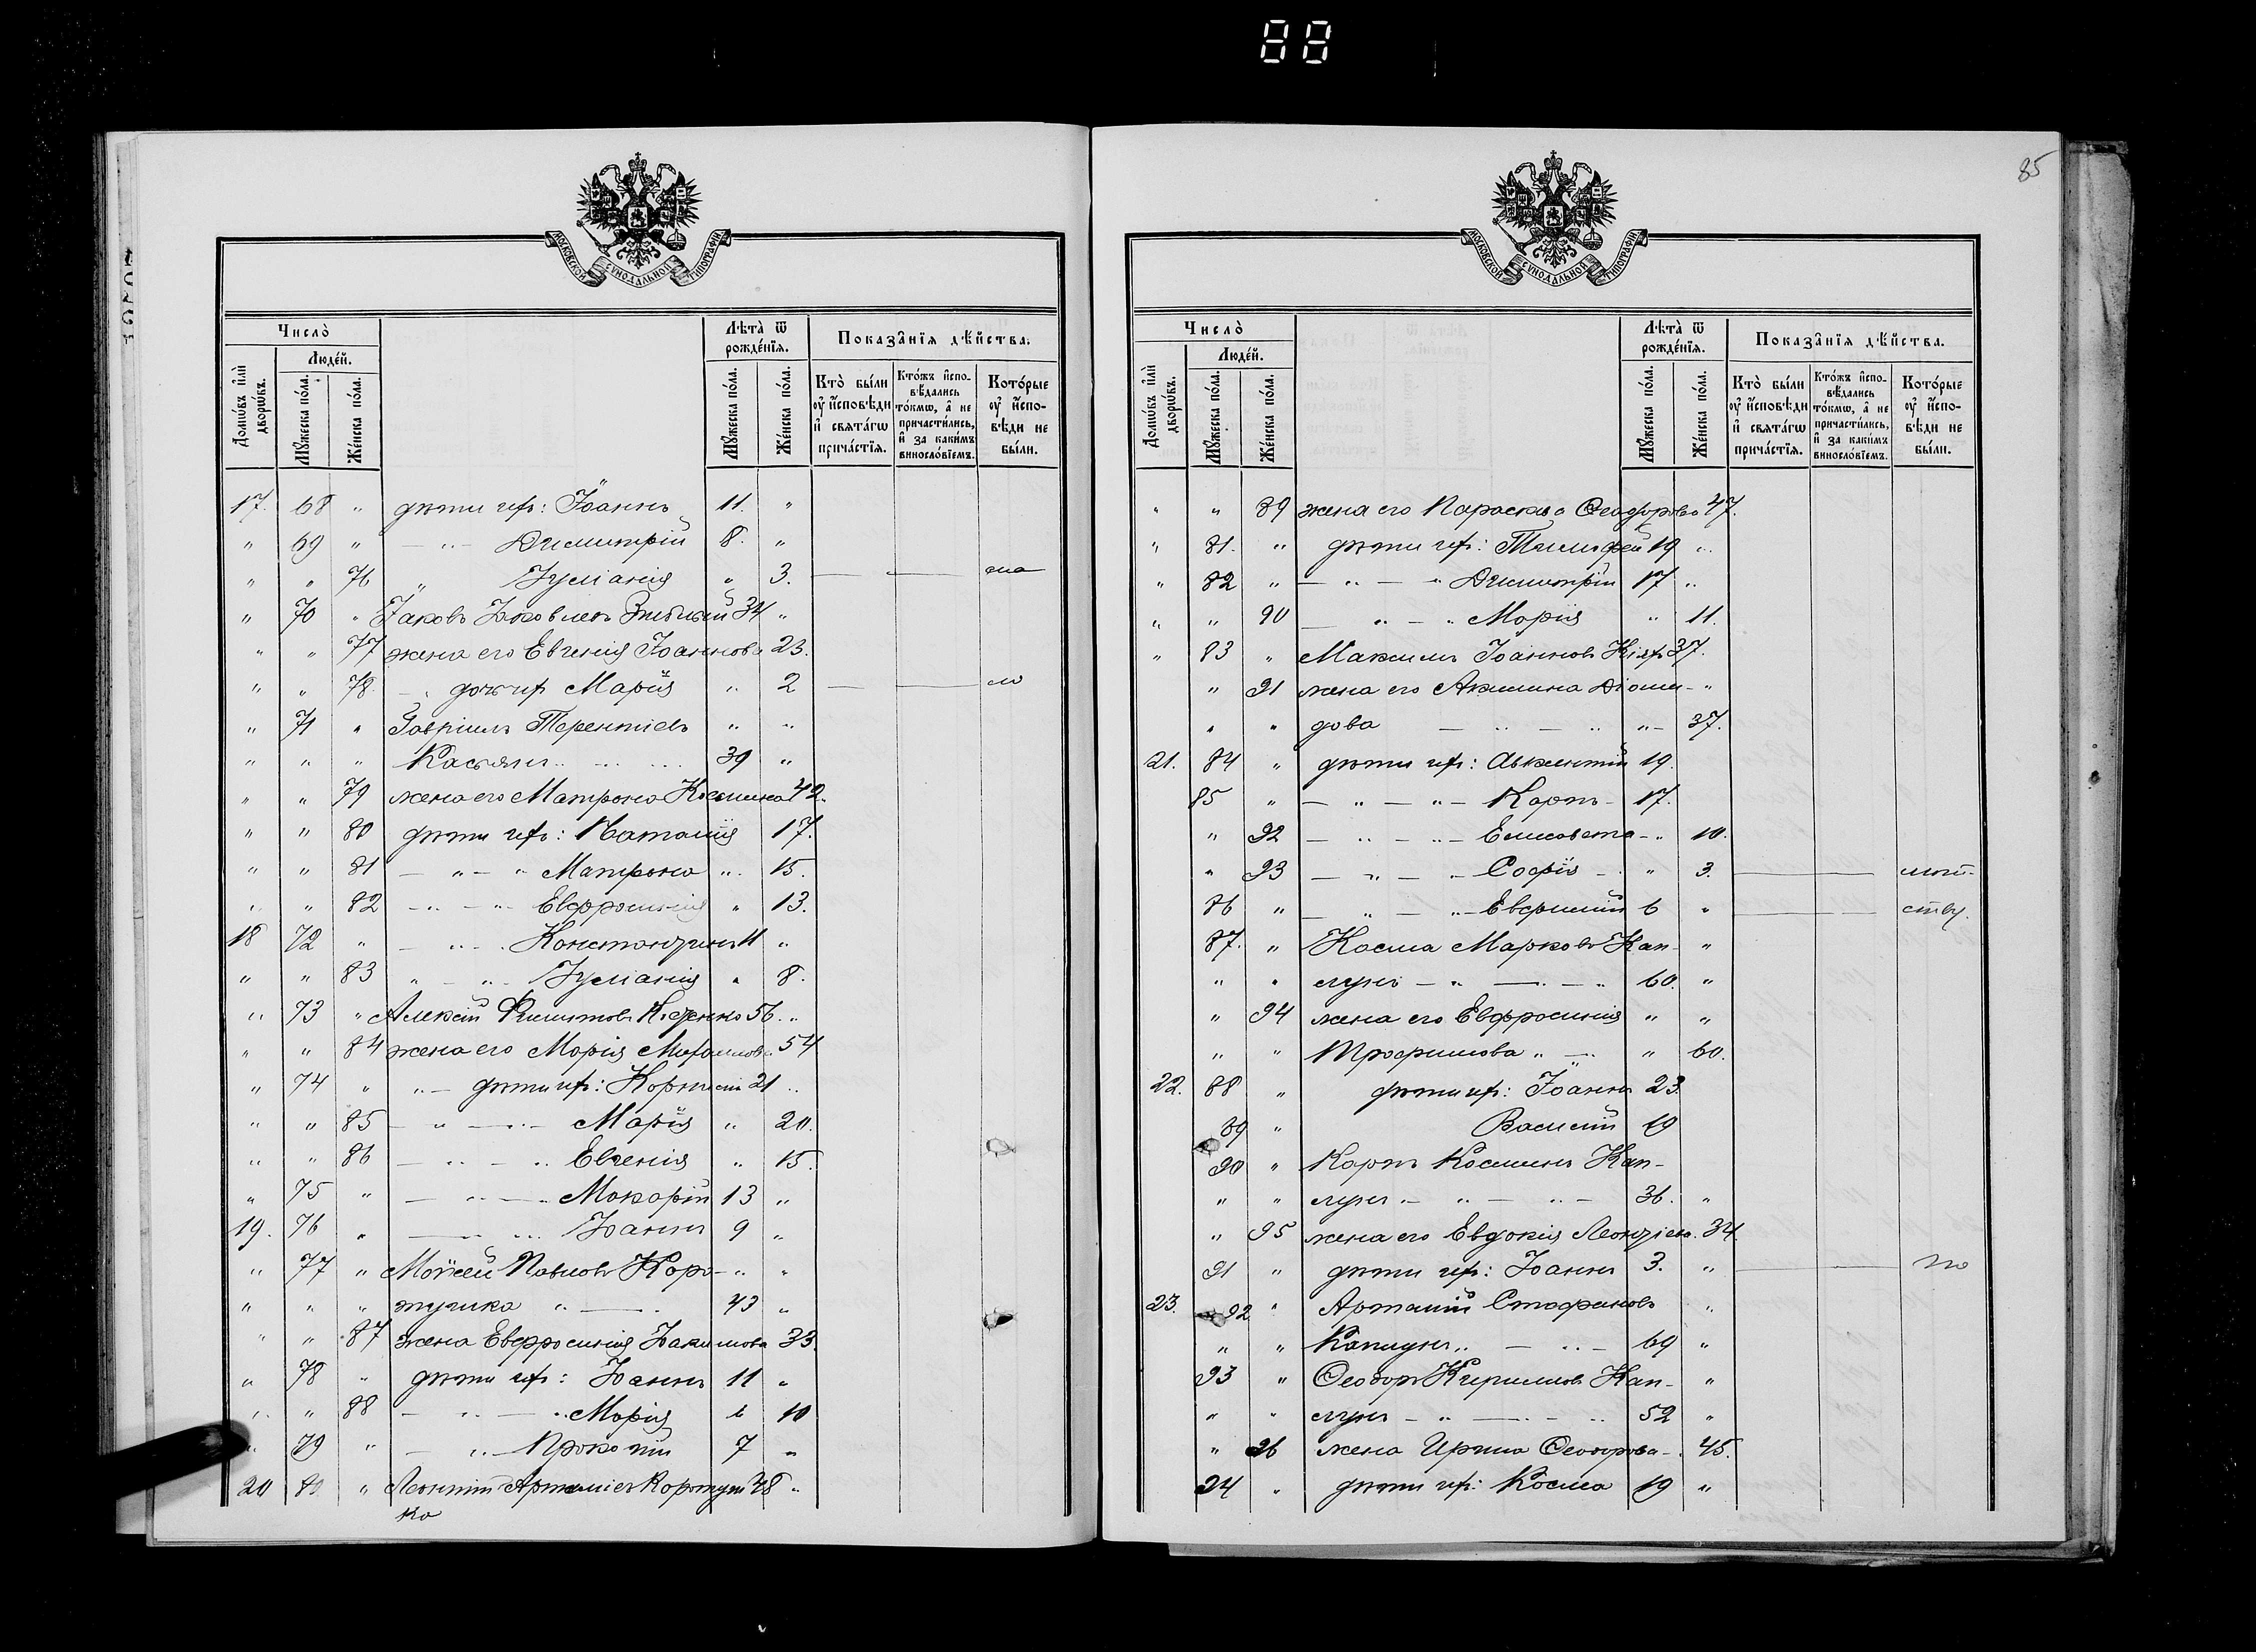 88
МОСКОВСКОЙ СУНОДАЛЬНОЙ ТИПОГРАФІИ
Число̀
Люде́й.
Домѡ́въ и҆лѝ дворѡ́въ.
Мꙋ́жеска по́ла.
Же́нска по́ла.
Лѣ́та ѿ рожде́нїѧ.
Мꙋ́жеска по́ла.
Же́нска по́ла.
Показа̑нїѧ дѣ́йства.
Кто̀ бы́ли ᲂу҆ и҆́сповѣди и҆ свѧта́гѡ прича́стїѧ.
Кто́жъ и҆спо-вѣ́дались то́кмѡ, а҆ не причасти́лись, и҆ за каки́мъ виносло́вїемъ.
Кото́рые ᲂу҆ и҆́спо-вѣди не бы́ли.
17. 68 " дѣти ихъ: Іоаннъ 11. "
" 69 " — " — Димитрій 8. "
" " 76 " Іуліанія " 3. — —
" 70 " Іаковъ Іаковлевъ 34 "
" " 77 жена его Евгенія Іоаннова 23.
" " 78. — " дочь их Марія " 2 — —
" 71 " Гавріилъ Терентіевъ " "
" " " Касьянъ 39 "
" " 79 жена его Матрона Космина 42.
" " 80 дѣти ихъ: Наталія 17.
" " 81 — " — " Матрона " 15.
" " 82 — " — " Евфросинія " 13.
18 72 " — " — Константинъ 11 "
" " 83 " — " — Іуліанія " 8.
" 73 " Алексій Филиповъ 56. "
" " 84 жена его Марія Михаилова 54
" 74 " " — дѣти ихъ: Корнилій 21 "
" " 85 — " — " — Марія " 20.
" " 86 — " — " Евгенія " 15.
" 75 " — " — Макарій 13 "
19. 76 " — " Іоаннъ 9 "
" 77 " Моѵсей Павловъ Коро- " "
" " " тушка " — 43 "
" " 87 жена Евфросинія Іакимова 33.
" 78 " дѣти ихъ: Іоаннъ 11 "
" " 88 — " — " Марія " 10
" 79 " — " — Прокопій 7 "
20 80 " Леонтій Артеміев Коротуш 48 "
ка
85
МОСКОВСКОЙ СУНОДАЛЬНОЙ ТИПОГРАФІИ
Число̀
Люде́й.
Домѡ́въ и҆лѝ дворѡ́въ.
Мꙋ́жеска по́ла.
Же́нска по́ла.
Лѣ́та ѿ рожде́нїѧ.
Мꙋ́жеска по́ла.
Же́нска по́ла.
Показа̑нїѧ дѣ́йства.
Кто̀ бы́ли ᲂу҆ и҆́сповѣди и҆ свѧта́гѡ прича́стїѧ.
Кто́жъ и҆спо-вѣ́дались то́кмѡ, а҆ не причасти́лись, и҆ за каки́мъ виносло́вїемъ.
Кото́рые ᲂу҆ и҆́спо-вѣди не бы́ли.
" " 89 жена его Параскева Ѳеодорова 47.
" 81. " дѣти ихъ: Тимофей 19 "
" 82 " — " — " Димитрій 17 "
" " 90 — " — " Марія " 11.
" 83 " Максимъ Іоанновъ 37.
" 91 жена его Акилина Діоми- "
" " дова — " — " " — 37.
21. 84 " дѣти ихъ: Авксентій 19.
85 " — " — " — Карпъ - 17.
" 92 — " — " — Елисавета - " 10.
" 93 — " — " — Софія — " 3. — —
86 " — " — " — Евфимій 6 " — —
87. " Косма Марковъ Кап- "
" " лунъ — " — " — " 60. "
" 94 жена его Евфросинія " "
" " Трофимова " — " 60.
22. 88 " дѣти ихъ: Іоаннъ 23.
89 " Василій 19
90 " Карпъ Косминъ Кап-
" " лунъ — " — " — 36. "
" 95 жена его Евдокія 34.
91 " дѣти ихъ: Іоаннъ 3. " — — то
23. 92 " Артемій Стефановъ "
" " Каплунъ " — " — 69 "
93 " Ѳеодоръ Кириллов Кап- "
" " лунъ — " — " — " 52 "
" 96 жена Ирина Ѳеодорова - 45.
94 " дѣти ихъ: Косма 19 "